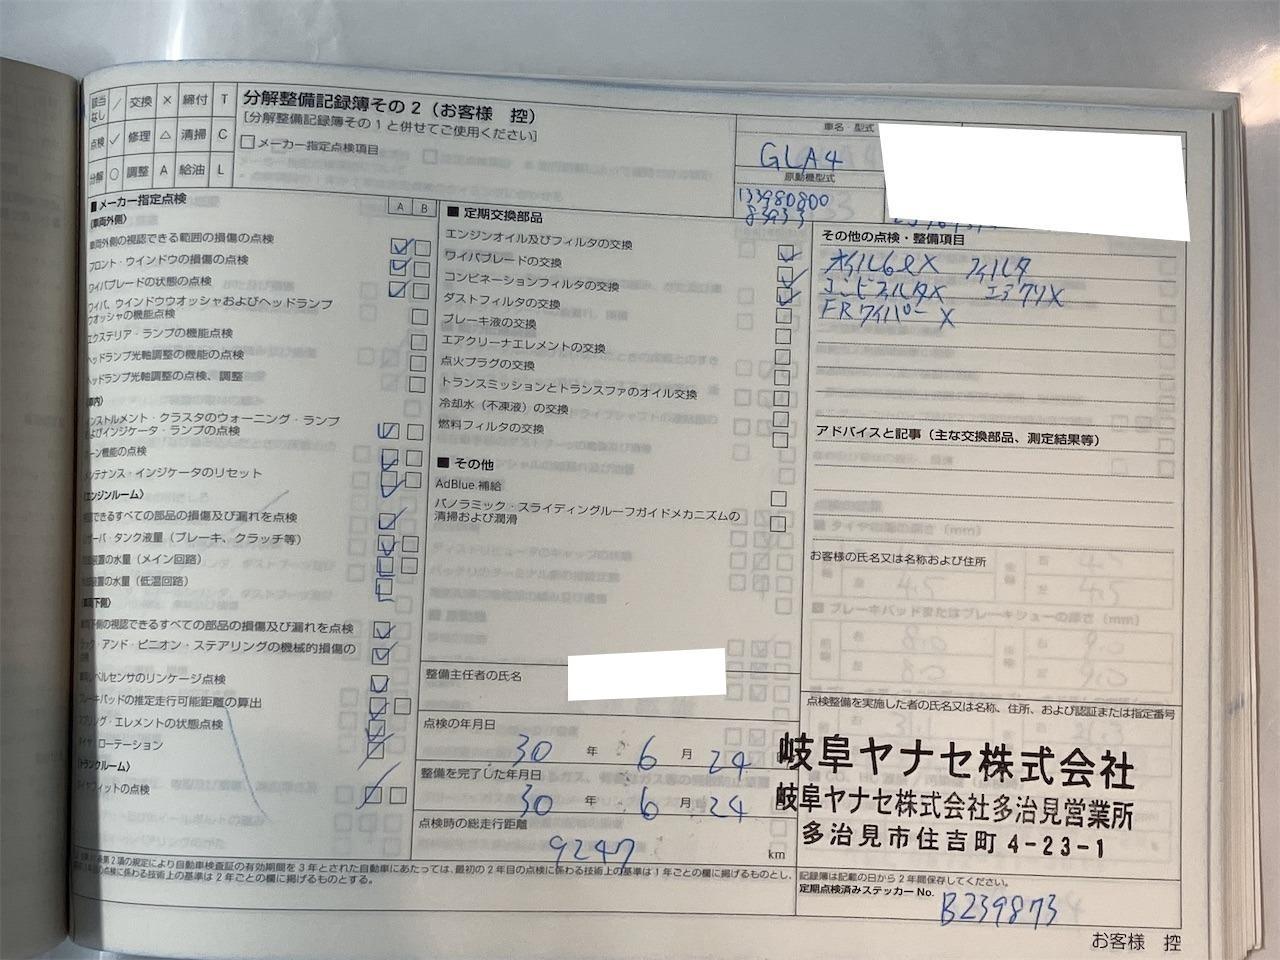 該当なし / 交換 × 締付 T
点検 ✓ 修理 △ 清掃 C
分解 ○ 調整 A 給油 L
分解整備記録簿その2（お客様 控）
[分解整備記録簿その1と併せてご使用ください]
□メーカー指定点検項目
車名・型式
GLA4
原動機型式
133980800
■ メーカー指定点検
A B
(車両外側)
車両外側の視認できる範囲の損傷の点検
フロント・ウインドウの損傷の点検
ワイパブレードの状態の点検
ワイパ、ウィンドウウオッシャおよびヘッドランプ
ウオッシャの機能点検
エクステリア・ランプの機能点検
ヘッドランプ光軸調整の機能の点検
ヘッドランプ光軸調整の点検、調整
インストルメント・クラスタのウォーニング・ランプ
およびインジケータ・ランプの点検
ホーン機能の点検
メンテナンス・インジケータのリセット
(エンジンルーム)
できるすべての部品の損傷及び漏れを点検
タンク液量（ブレーキ、クラッチ等）
装置の水量（メイン回路）
装置の水量（低温回路）
下側の視認できるすべての部品の損傷及び漏れを点検
アンド・ピニオン・ステアリングの機械的損傷の
レベルセンサのリンケージ点検
ブレーキパッドの推定走行可能距離の算出
エレメントの状態点検
ローテーション
(トランクルーム)
フィットの点検
■ 定期交換部品
エンジンオイル及びフィルタの交換
ワイパブレードの交換
コンビネーションフィルタの交換
ダストフィルタの交換
ブレーキ液の交換
エアクリーナエレメントの交換
点火プラグの交換
トランスミッションとトランスファのオイル交換
冷却水（不凍液）の交換
燃料フィルタの交換
■ その他
AdBlue 補給
パノラミック・スライディングルーフガイドメカニズムの
清掃および潤滑
整備主任者の氏名
点検の年月日
30 年 6 月 24
整備を完了した年月日
30 年 6 月 24
点検時の総走行距離
9247 km
その他の点検・整備項目
オイル6ℓ× フィルタ
コンビフィルタ× エアクリ×
FRワイパー ×
アドバイスと記事（主な交換部品、測定結果等）
お客様の氏名又は名称および住所
点検整備を実施した者の氏名又は名称、住所、および認証または指定番号
岐阜ヤナセ株式会社
岐阜ヤナセ株式会社多治見営業所
多治見市住吉町 4-23-1
第2項の規定により自動車検査証の有効期間を3年とされた自動車にあたっては、最初の2年目の点検に係わる技術上の基準は1年ごとの欄に掲げるものとし、
の点検に係わる技術上の基準は2年ごとの欄に掲げるものとする。
記録簿は記載の日から2年間保存してください。
定期点検済みステッカー No.
B239873
お客様 控